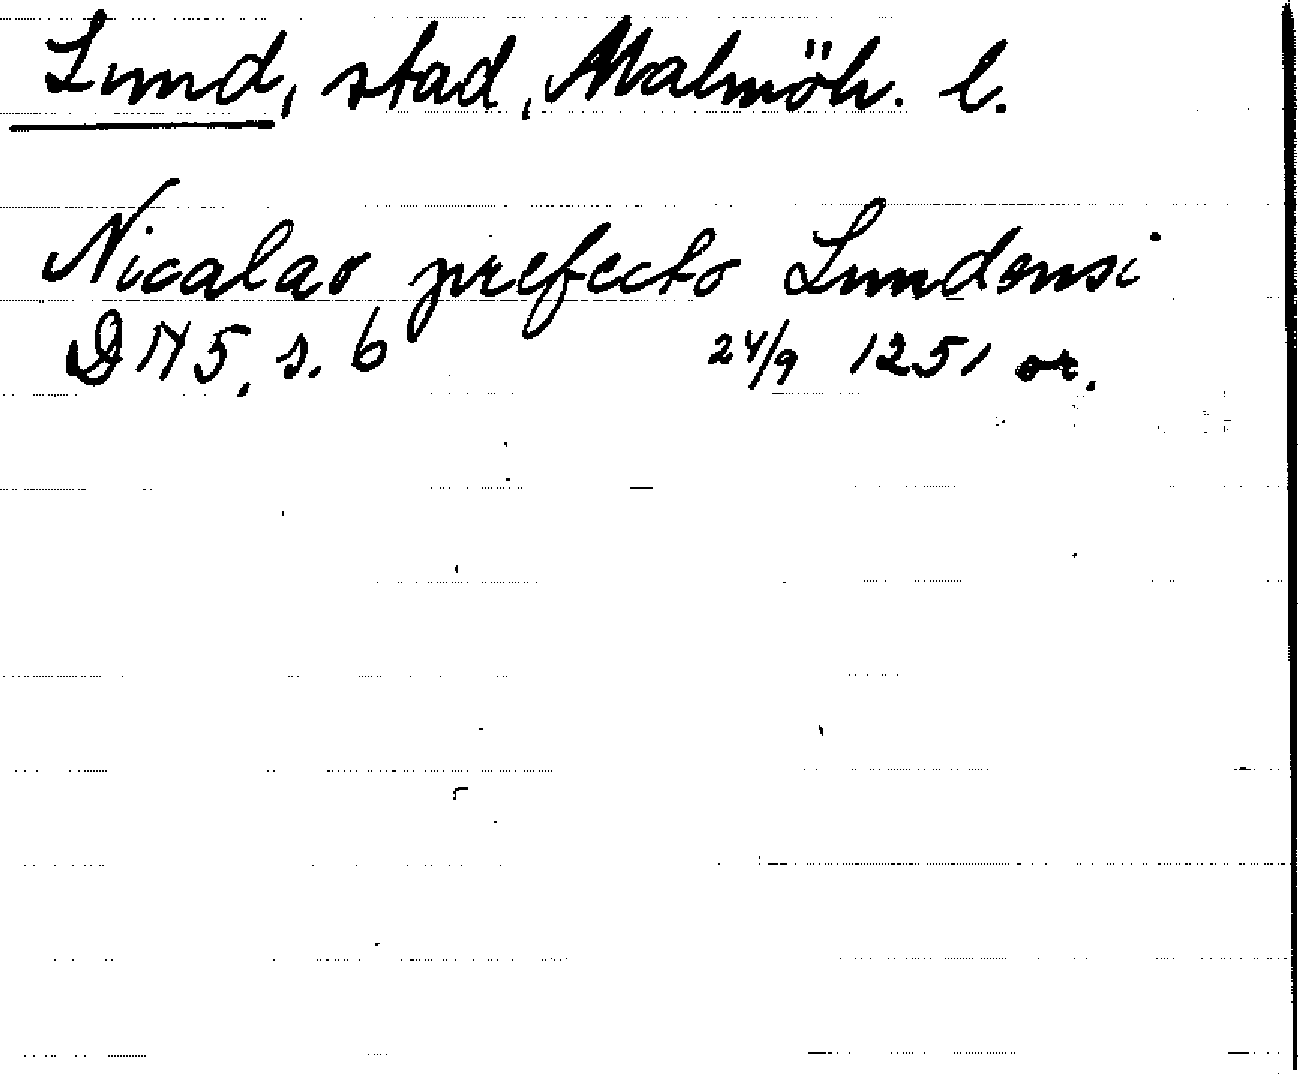 Lund, stad, Malmöh. l.
Nicolao prefecto Lundensi
DN 5, s. 6 24/9 1251 or.